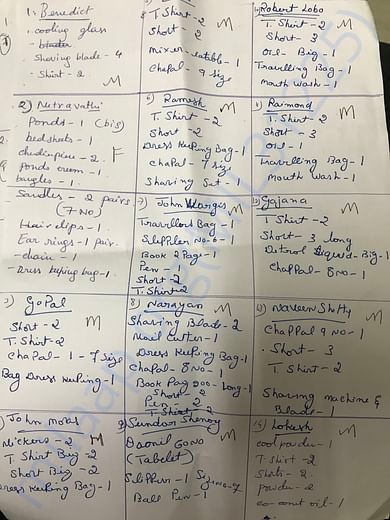 1. Benedict
. cooling glass - 1
. Shaving blade - 4
. Shirt - 2
M
2) Netravathi
Ponds - 1 (big)
bed sheets - 1
- 2. F
Ponds cream - 1.
bangles - 1.
Sandles - 2 pairs
(7 NO)
Hair clips - 1.
Ear rings - 1 pair.
- chain - 1
- Dress keeping bag - 1.
3) GOPal
Short - 2
M
T. Shirt - 2
ChaPal - 1 - 7 Size
Bag Dress KeePing - 1
John moras
Nickers - 2 M
T Shirt Big - 2
Short Big - 2
Dress KeePing Bag - 1
T. Shirt - 2
M
Short - 2
mixer - eatible - 1
Chapal - 9 Size
6) Ramesh
M
T. Shirt - 2
Short - 2
Dress KeePing Bag - 1
ChaPal - 7 Size
Shaving Set - 1
7) John Wargis
M
Travellers Bag - 1
SliPPler No - 6 - 1
Book 2 Page - 1
Pen - 1
Short - 2
T. Shirt 2
8) Narayan
M
Shaving Blade - 2
Nail Cutter - 1
Dress KeePing Bag - 1
Chapal - 8 No - 1
Book Page 200 - Long - 1
Short - 2
Pen - 2
T. Shirt - 2
9) Sundar Shenoy
M
Daonil GONO
(Tabelet)
SliPPer - 1 Size
Ball Pen - 1
Robert Lobo
T. Shirt - 2
M
Short - 3
Oil - Big - 1
Travelling Bag - 1
Mouth Wash - 1
Raimond
M
T. Shirt - 2
Short - 3
Oil - 1
Travelling Bag - 1
Mouth Wash - 1
Gajana
M
T Shirt - 2
Short - 3 long
Detrol Liquid - Big - 1
ChaPPal - 8 No - 1
Naveen Shetty
M
ChaPPal 9 NO - 1
. Short - 3
T Shirt - 2
Shaving machine &
Blade - 1
14) Lokesh
M
cool powder - 1
T. Shirt - 2
Shirts - 2
powder - 2
coconut oil - 1